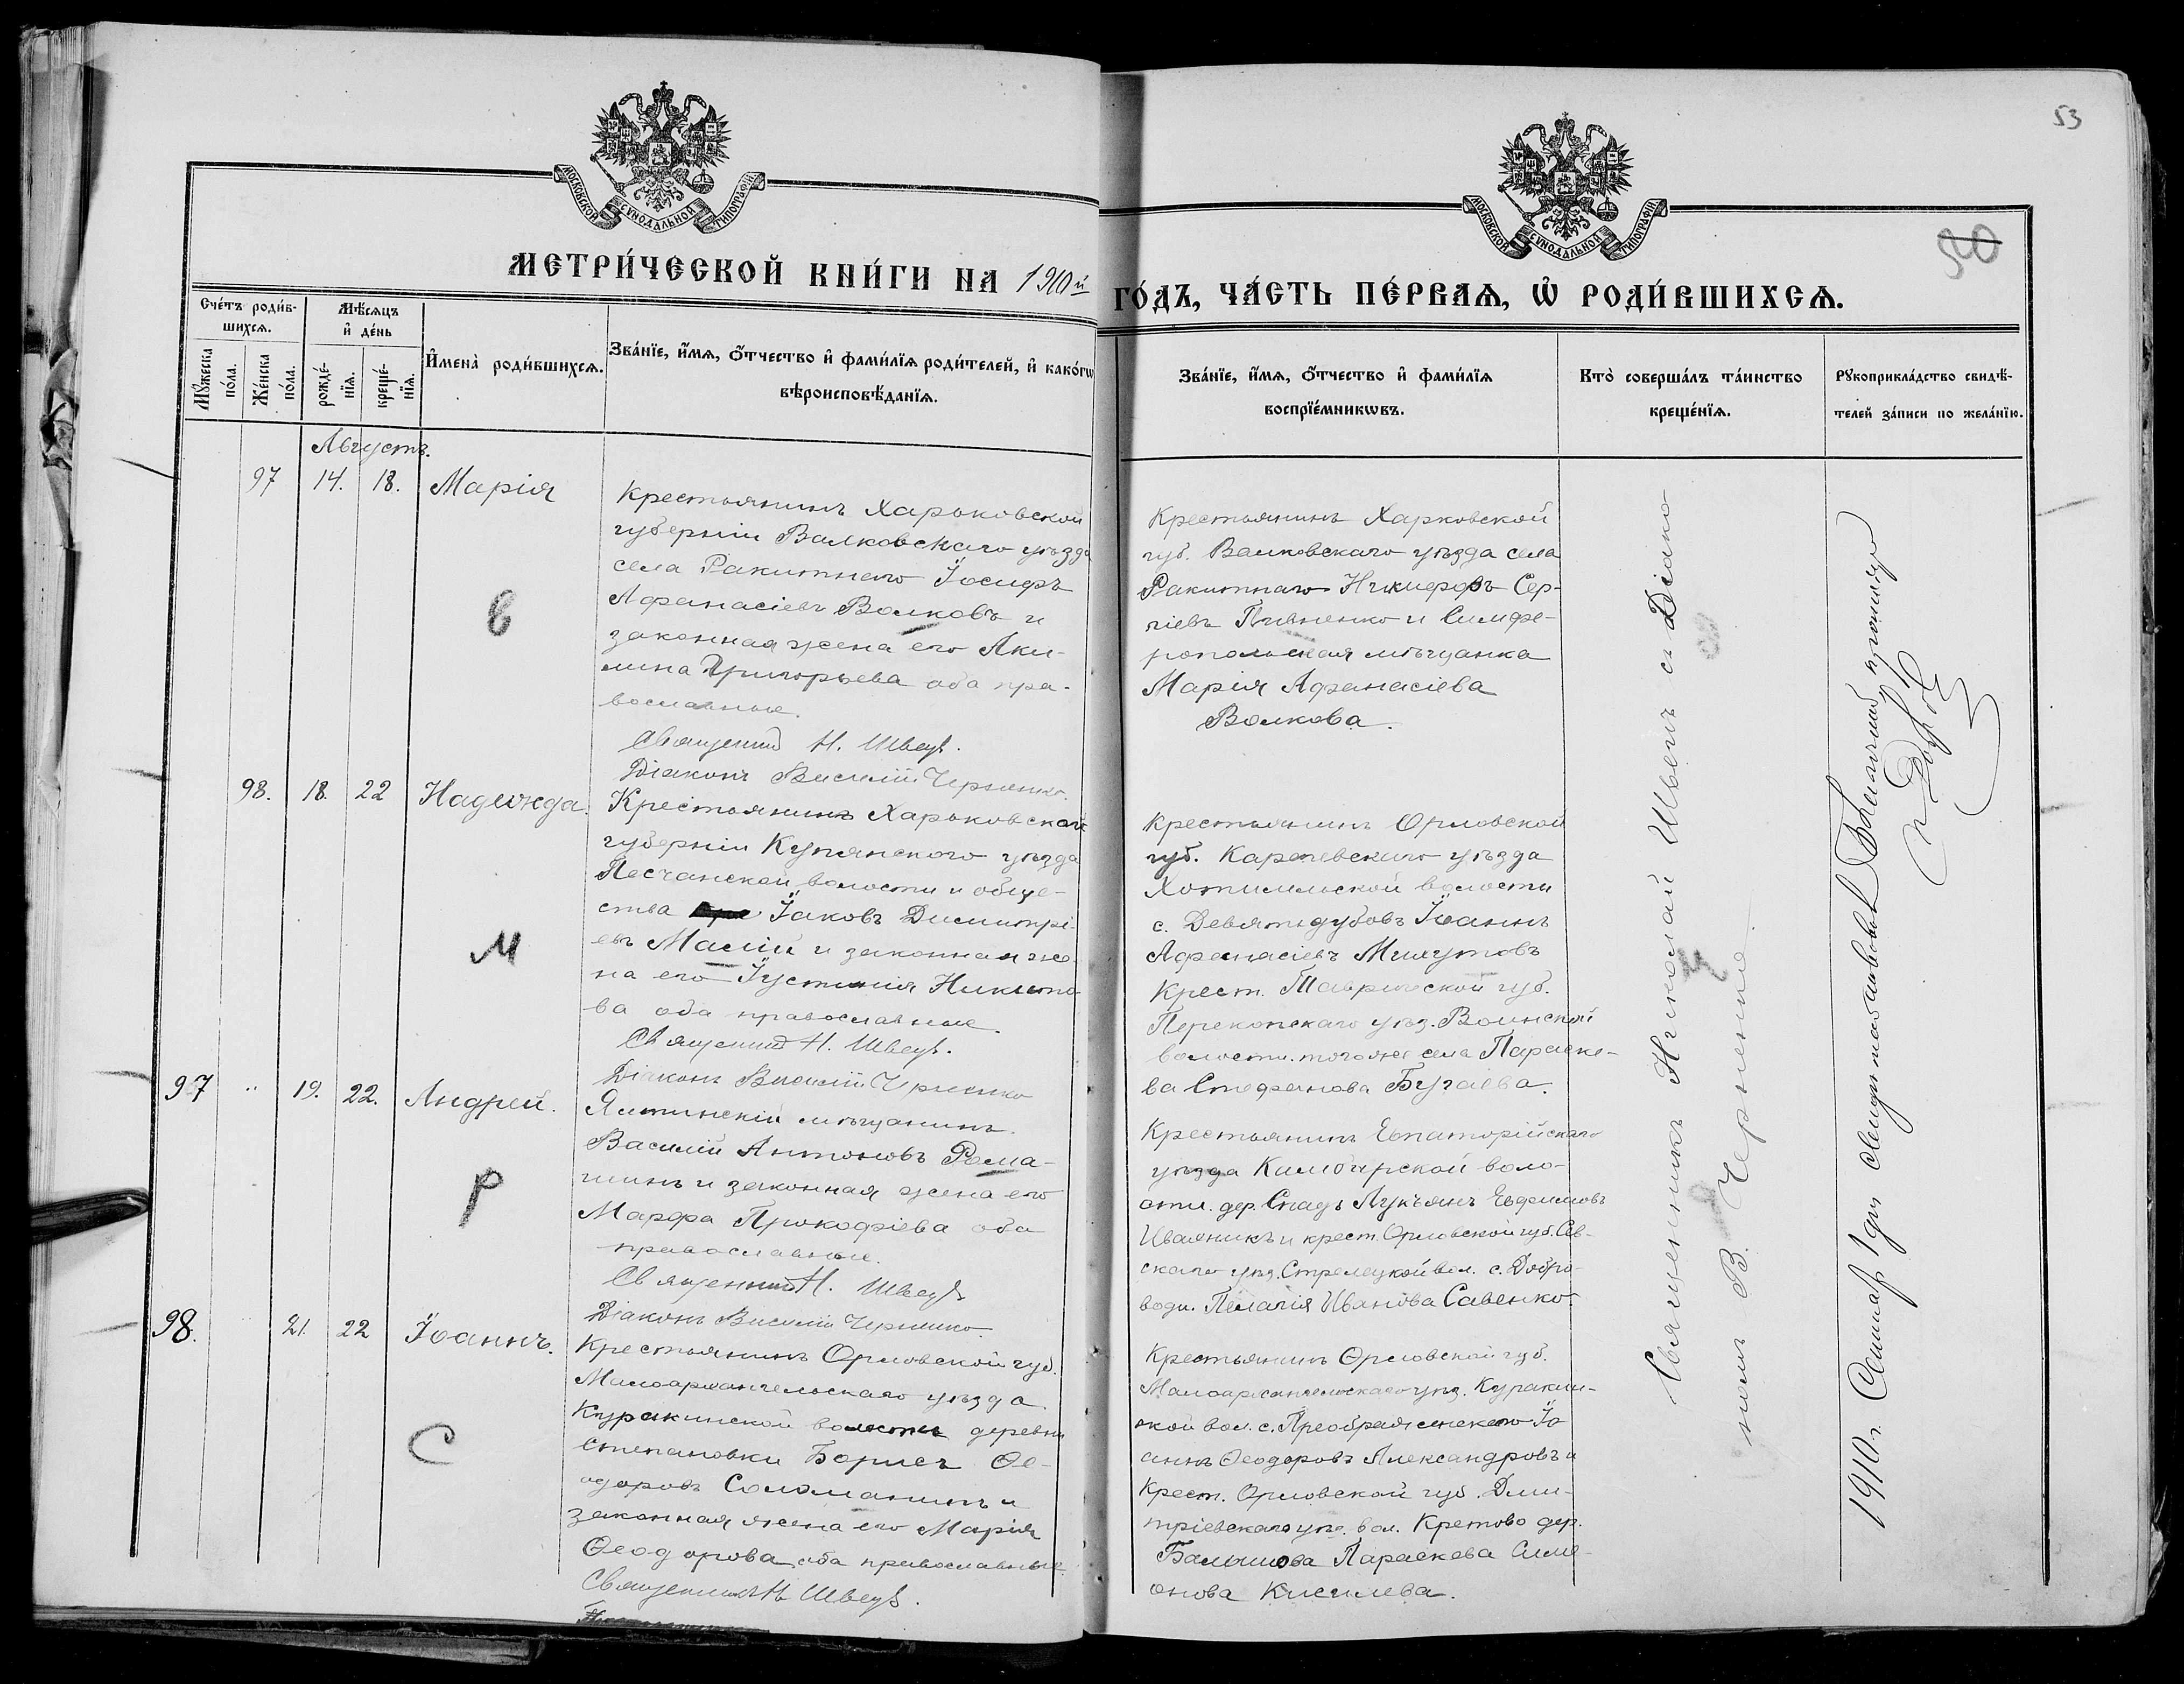 53
МОСКОВСКОЙ СѴНОДАЛЬНОЙ ТИПОГРАФІИ
МОСКОВСКОЙ СѴНОДАЛЬНОЙ ТИПОГРАФІИ
50
МЕТРИ́ЧЕСКОЙ КНИ́ГИ НА 1910й
ГО́ДЪ, ЧА́СТЬ ПЕ́РВАѦ, Ѽ РОДИ́ВШИХСѦ.
Сче́тъ роди́в-
шихсѧ.
Мꙋ́жеска
по́ла.
Же́нска
по́ла.
Мѣ́сѧцъ
и҆ де́нь
рожде́-
нїѧ.
креще́-
нїѧ.
И҆мена̀ роди́вшихсѧ.
Зва́нїе, и҆́мѧ, ѻ҆́тчество и҆ фами́лїѧ роди́телей, и҆ како́гѡ
вѣроисповѣ́данїѧ.
Зва́нїе, и҆́мѧ, ѻ҆́тчество и҆ фами́лїѧ
воспрїе́мникѡвъ.
Кто̀ соверша́лъ та́инство
креще́нїѧ.
Рꙋкоприкла́дство свидѣ́-
телей за́писи по жела́нїю.
Августъ.
97 14. 18. Марія
Крестьянинъ Харьковской
губерніи Валковскаго уѣзда
села Ракитнаго Іосифъ
Афанасіевъ Волковъ и
законная жена его Аки-
лина Григорьева оба пра-
вославные.
Священникъ Н. Швецъ.
Діаконъ Василій Черненко.
В
Крестьянинъ Харковской
губ. Валковскаго уѣзда села
Ракитнаго Никифоръ Сер-
гіевъ Пивненко и Симфе-
ропольская мѣщанка
Марія Афанасіева
Волкова.
98. 18. 22 Надежда.
Крестьянинъ Харьковской
губерніи Купянскаго уѣзда
Песчанской волости и обще-
ства Іаковъ Димитрі-
евъ Малій и законная же-
на его Іустинія Никито-
ва оба православные.
Священникъ Н. Швецъ.
Діаконъ Василій Черненко
М
Крестьянинъ Орловской
губ. Карачевскаго уѣзда
Хотимльской волости
с. Девятидубовъ Іоаннъ
Афанасіевъ Мишутовъ
Крест. Таврической губ.
Перекопскаго уѣз. Воинской
волости того же села Параске-
ва Стефанова Бугаева.
97 " 19. 22. Андрей.
Ялтинскій мѣщанинъ
Василій Антоновъ Рома-
шинъ и законная жена его
Марфа Прокофіева оба
православные.
Священникъ Н. Швецъ
Діаконъ Василій Черненко.
Р
Крестьянинъ Евпаторійскаго
уѣзда Камбарской воло-
сти. дер. Спадъ Лукъянъ Евфимовъ
Иваяникъ и крест. Орловской губ. Сев-
скаго уѣз. Стрелецкой вол. с. Добро-
води. Пелагія Иванова Савенко.
98. 21. 22 Іоаннъ.
Крестьянинъ Орловской губ.
Малоархангельскаго уѣзда
Куракинской волости деревни
Степановки Борисъ Ѳе-
одоровъ Соломанинъ и
законная жена его Марія
Ѳеодорова оба православные
Священникъ Н Швецъ.
С
Крестьянинъ Орловской губ.
Малоархангельскаго уѣз. Куракин-
ской вол. с. Преображенскаго Іо-
аннъ Ѳеодоровъ Александровъ и
Крест. Орловской губ. Дми-
тріевскаго уѣз. вол. Кретово дер.
Балышова Параскева Симе-
онова Киселева.
Священникъ Николай Швецъ съ Діако-
номъ В. Черненко.
1910 г. Сентября 1 дня